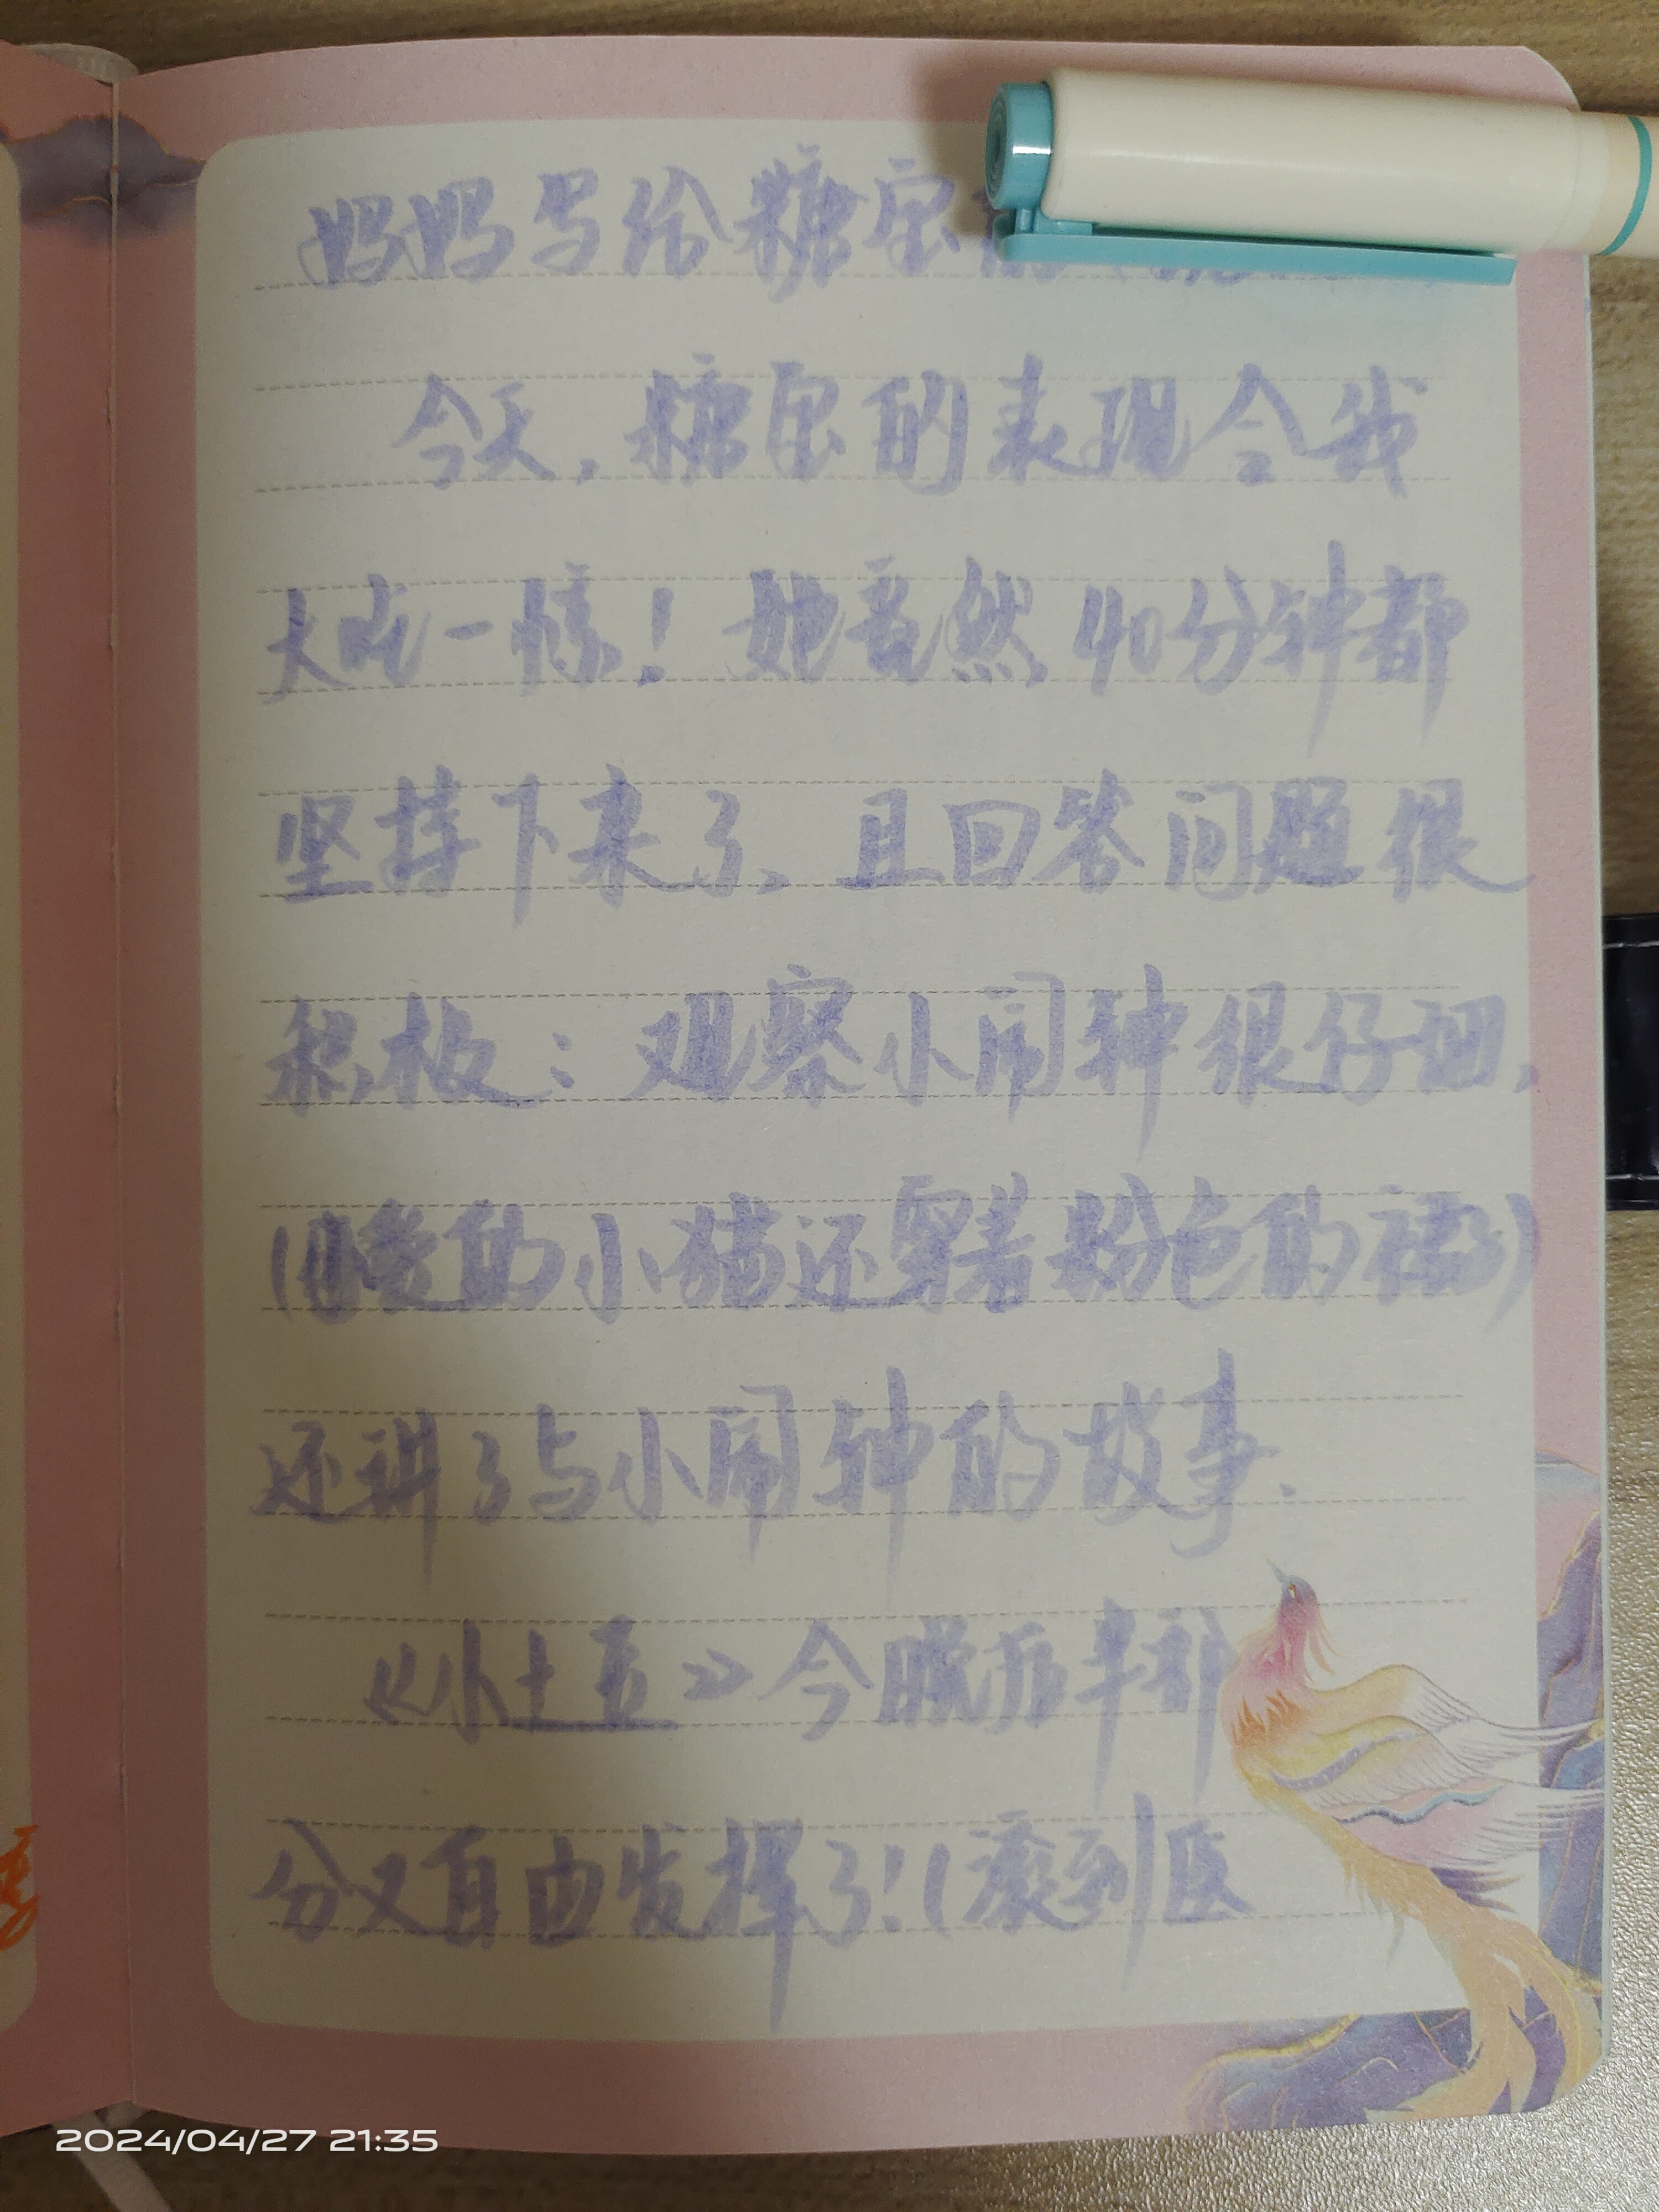 妈妈写给糖宝的
今天,糖宝的表现令我
大吃一惊!她竟然40分钟都
坚持下来了,且回答问题很
积极:观察小闹钟很仔细,
(睡的小猫还穿着粉色的裙)
还讲了与小闹钟的故事.
《小土豆》今晚后半部
分又自由发挥了!(滚到医
2024/04/27 21:35